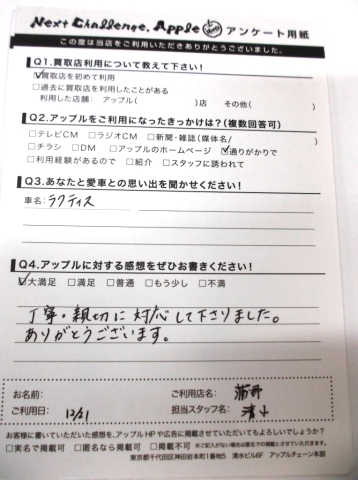 Next Challenge, Apple アンケート用紙
この度は当店をご利用いただきありがとうございました。
Q1.買取店利用について教えて下さい!
☑買取店を初めて利用
□過去に買取店を利用したことがある
利用した店舗: アップル( )店 その他( )
Q2.アップルをご利用になったきっかけは?(複数回答可)
□テレビCM □ラジオCM □新聞・雑誌(媒体名/ )
□チラシ □DM □アップルのホームページ ☑通りがかりで
□利用経験があるので □紹介 □スタッフに誘われて
Q3.あなたと愛車との思い出を聞かせください!
車名: ラクティス
Q4.アップルに対する感想をぜひお書きください!
☑大満足 □満足 □普通 □もう少し □不満
丁寧・親切に対応して下さりました。
ありがとうございます。
お名前: ご利用店名:
ご利用日: 12/21 担当スタッフ名: 清水
お客様に書いていただいた感想を、アップルHPや広告に掲載させていただいてもよろしいでしょうか?
□実名で掲載可 □匿名なら掲載可 □掲載不可 ※ご記入がない場合は匿名での掲載とさせていただきます。
東京都千代田区神田岩本町1番地5 清水ビル6F アップルチェーン本部